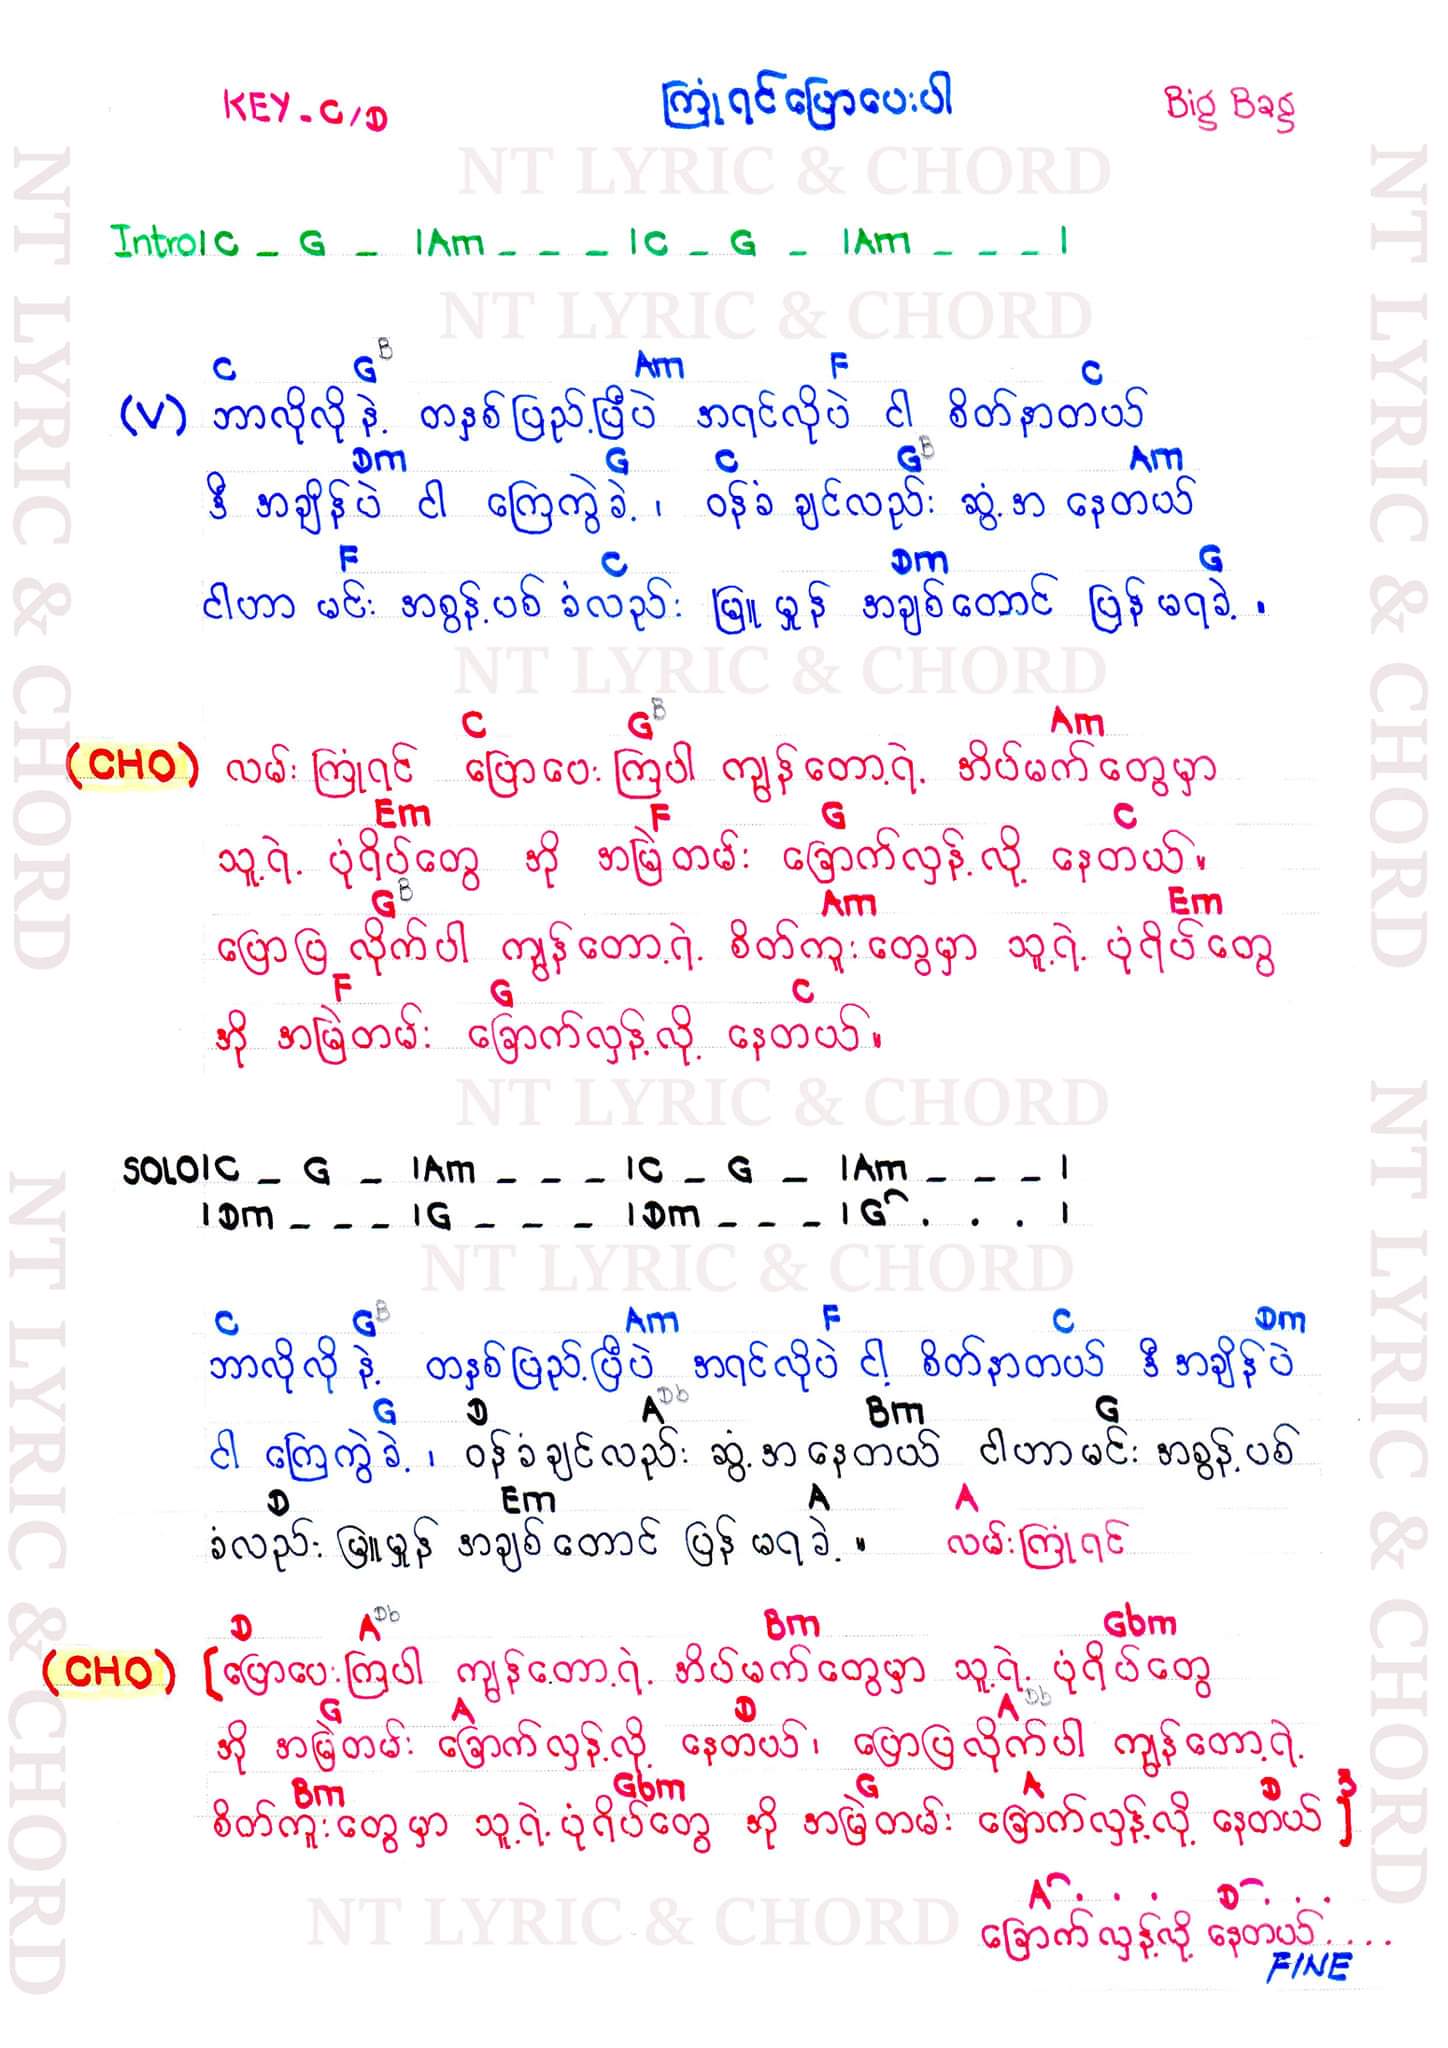 KEY - C/D ကြုံရင်ပြောပေးပါ Big Bag
NT LYRIC & CHORD
Intro | C _ G _ | Am _ _ _ | C _ G _ | Am _ _ _ |
NT LYRIC & CHORD
C G B Am F C
(V) ဘာလိုလိုနဲ့ တနှစ်ပြည့်ပြီပဲ အရင်လိုပဲ ငါ စိတ်နာတယ်
Dm G C G B Am
ဒီ အချိန်ပဲ ငါ ကြေကွဲခဲ့ ၊ ဝန်ခံ ချင်လည်း ဆွံ့အ နေတယ်
F C Dm G
ငါဟာ မင်း အစွန့်ပစ် ခံလည်း မြူမှုန် အချစ်တောင် ပြန် မရခဲ့ ။
NT LYRIC & CHORD
C G B Am
(CHO) လမ်းကြုံရင် ပြောပေးကြပါ ကျွန်တော့ရဲ့ အိပ်မက်တွေမှာ
Em F G C
သူ့ရဲ့ ပုံရိပ်တွေ အို အမြဲတမ်း ခြောက်လှန့်လို့ နေတယ်။
G B Am Em
ပြောပြလိုက်ပါ ကျွန်တော့ရဲ့ စိတ်ကူးတွေမှာ သူ့ရဲ့ ပုံရိပ်တွေ
F G C
အို အမြဲတမ်း ခြောက်လှန့်လို့ နေတယ်။
NT LYRIC & CHORD
SOLO | C _ G _ | Am _ _ _ | C _ G _ | Am _ _ _ |
| Dm _ _ _ | G _ _ _ | Dm _ _ _ | G . . . |
NT LYRIC & CHORD
C G B Am F C Dm
ဘာလိုလိုနဲ့ တနှစ်ပြည့်ပြီပဲ အရင်လိုပဲ ငါ့ စိတ်နာတယ် ဒီအချိန်ပဲ
G D A Db Bm G
ငါ ကြေကွဲခဲ့ ၊ ဝန်ခံချင်လည်း ဆွံ့အနေတယ် ငါဟာမင်း အစွန့်ပစ်
D Em A A
ခံလည်း မြူမှုန် အချစ်တောင် ပြန် မရခဲ့ ။ လမ်းကြုံရင်
D A Db Bm Gbm
(CHO) [ပြောပေးကြပါ ကျွန်တော့ရဲ့ အိပ်မက်တွေမှာ သူ့ရဲ့ ပုံရိပ်တွေ
G A D A Db
အို အမြဲတမ်း ခြောက်လှန့်လို့ နေတယ်၊ ပြောပြလိုက်ပါ ကျွန်တော့ရဲ့
Bm Gbm G A D
စိတ်ကူးတွေမှာ သူ့ရဲ့ ပုံရိပ်တွေ အို အမြဲတမ်း ခြောက်လှန့်လို့ နေတယ် ]3
A . . . D . . .
ခြောက်လှန့်လို့ နေတယ်....
NT LYRIC & CHORD
FINE
NT LYRIC & CHORD
NT LYRIC & CHORD
NT LYRIC & CHORD
NT LYRIC & CHORD